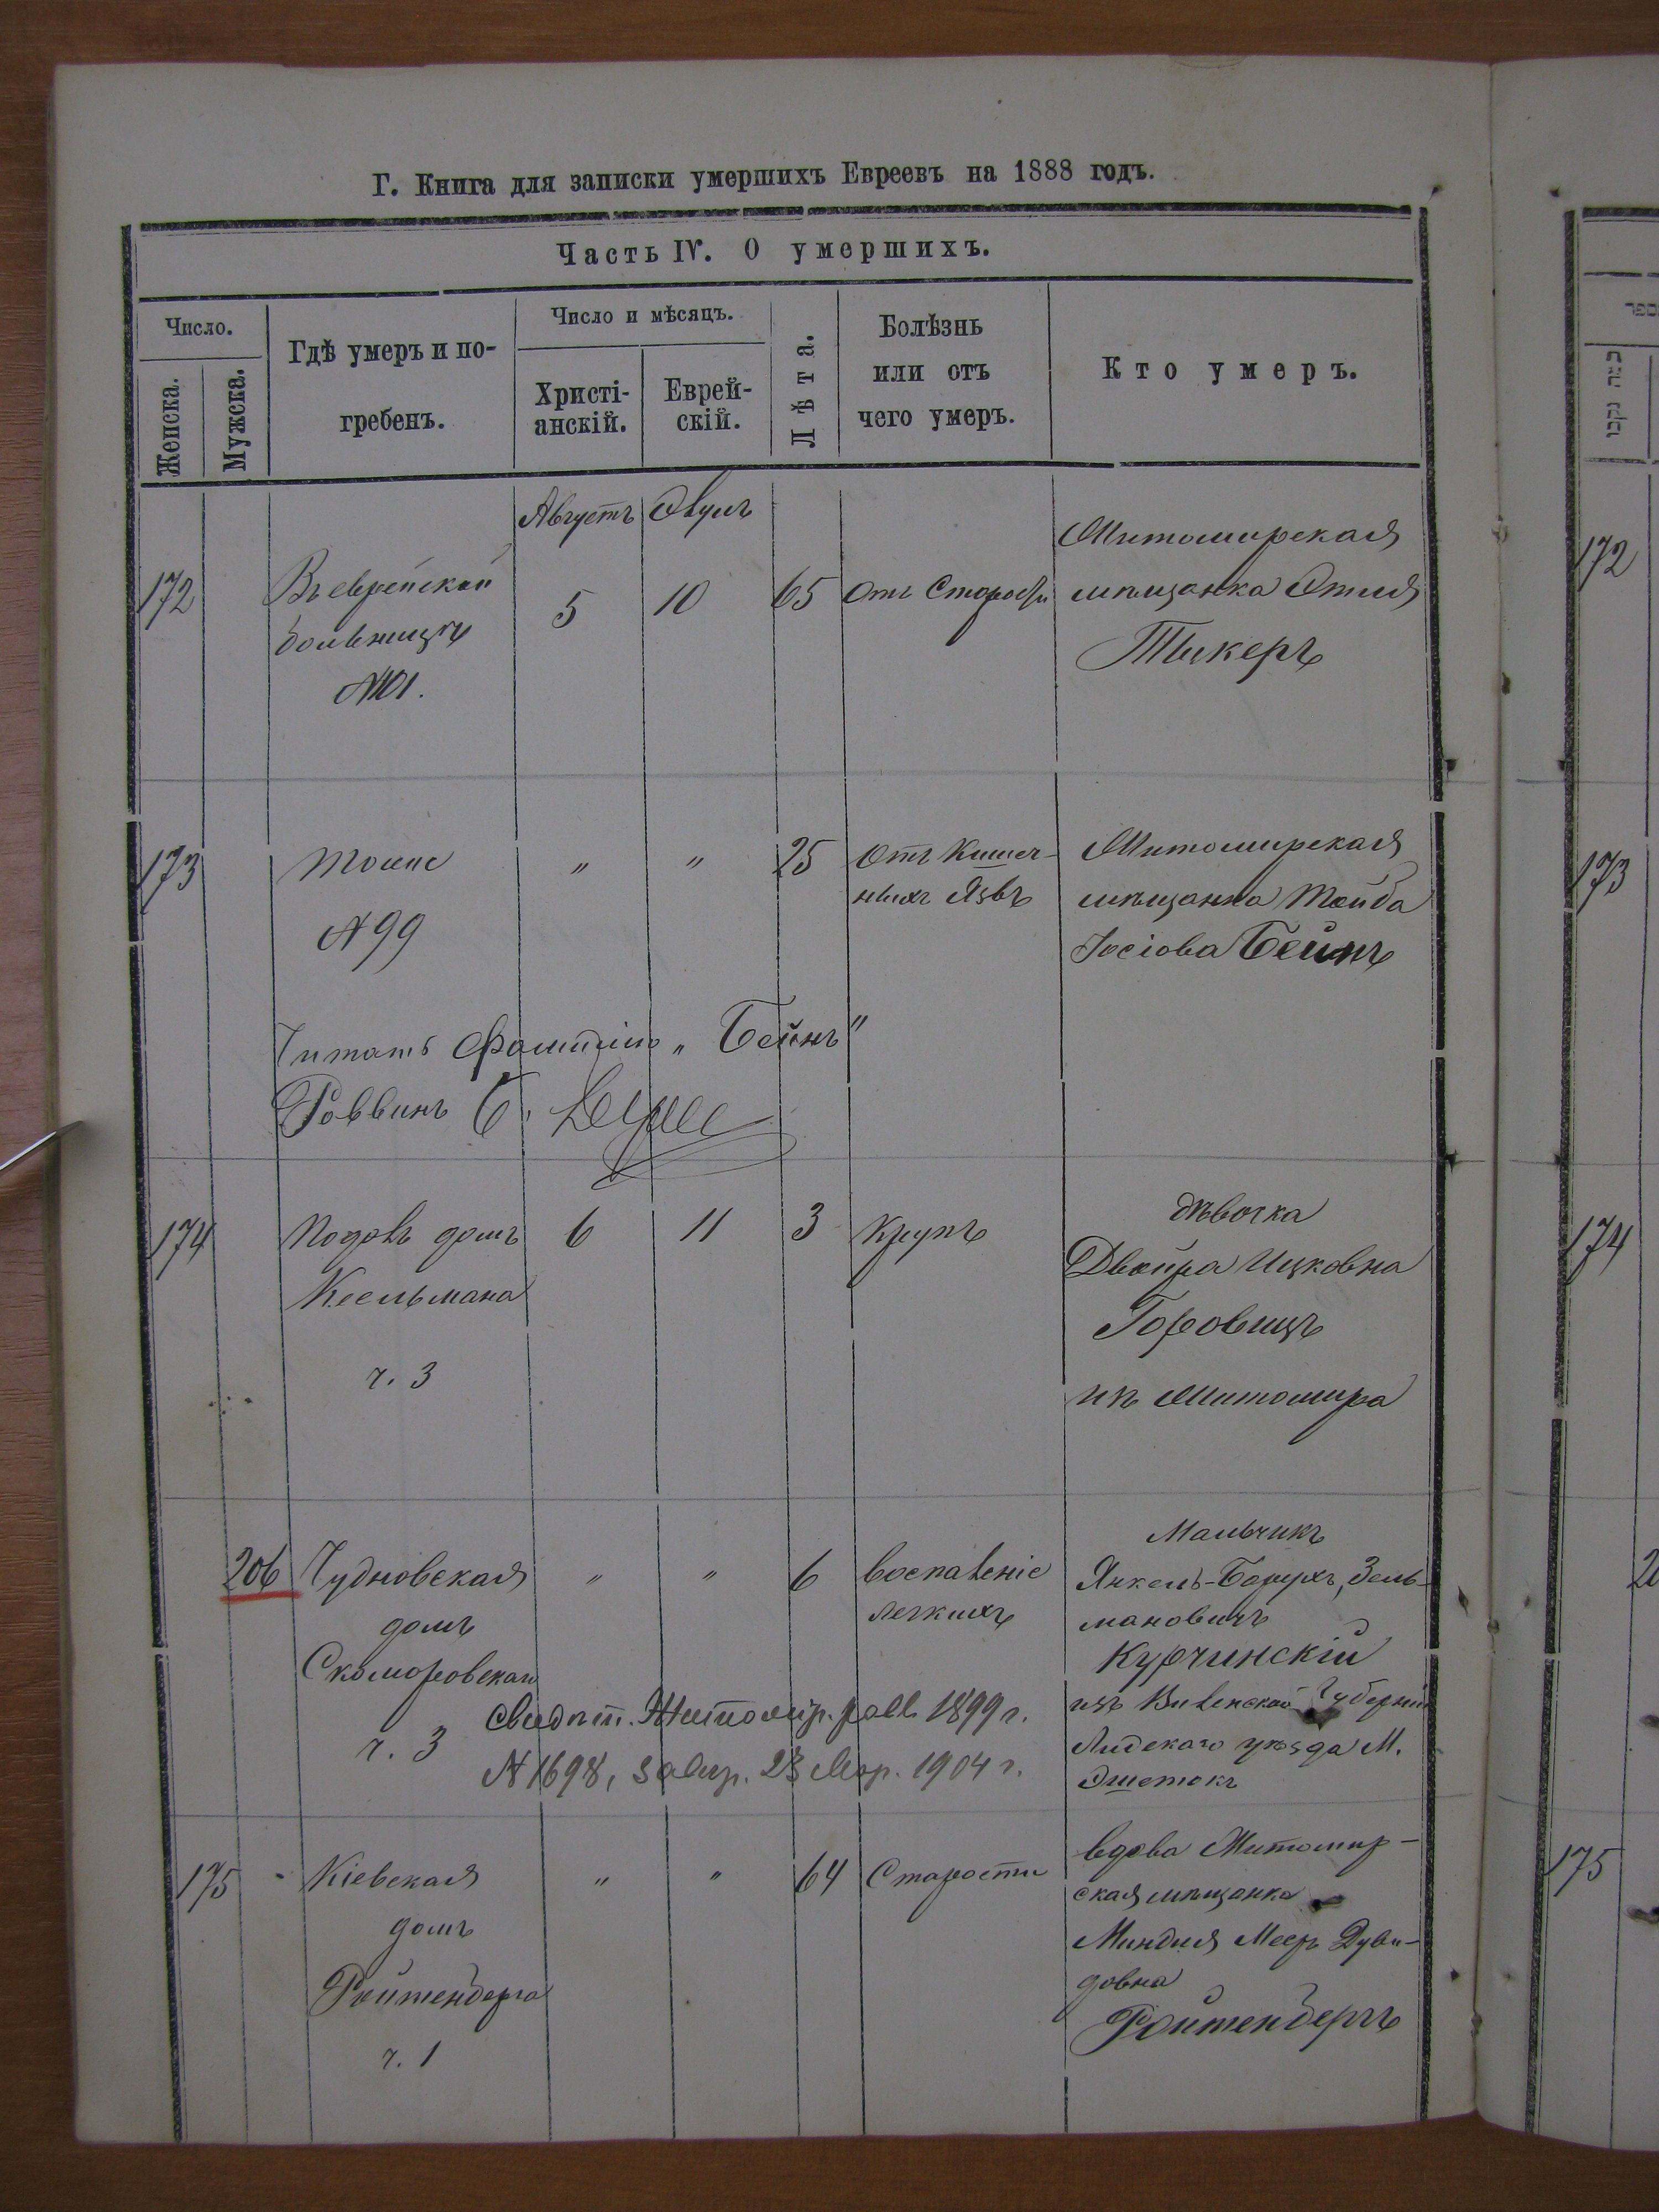 Г. Книга для записки умершихъ Евреевъ на 1888 годъ.
Часть IV. О умершихъ.
Число.
Женска.
Мужска.
Гдѣ умеръ и по-
гребенъ.
Число и мѣсяцъ.
Христі-
анскій.
Еврей-
скій.
Лѣта.
Болѣзнь
или отъ
чего умеръ.
Кто умеръ.
Августъ
172
Въ еврейской
больницѣ
№101.
5
10
65
Отъ Старости
Житомирская
мѣщанка
173
тоже
№ 99
"
"
25
Отъ Кишеч-
ныхъ Язвъ
Житомирская
мѣщанка Тойба
Іосіова Бейнъ
Читать фамилію „Бейнъ"
Раввинъ
174
Подовъ домъ
Кесельмана
ч. 3
6
11
3
Крупъ
дѣвочка
Двойра Ицковна
Горовицъ
изъ Житомира
206
Чудновская
домъ
Скоморовскаго
ч. 3
"
"
6
Воспаленіе
легкихъ
Мальчикъ
Янкель-Борухъ, Зель-
мановичъ
Курчинскій
изъ Виленской Губерніи
Лидскаго уѣзда М.
свидѣт. Житомір. равв. 1899 г.
№ 1698, 28 Мар. 1904 г.
175
Кіевская
домъ
Ройтенберга
ч. 1
"
"
64
Старости
вдова Житомир-
ская мѣщанка
Миндля Меер Дуви-
довна
Ройтенбергъ
172
173
174
175